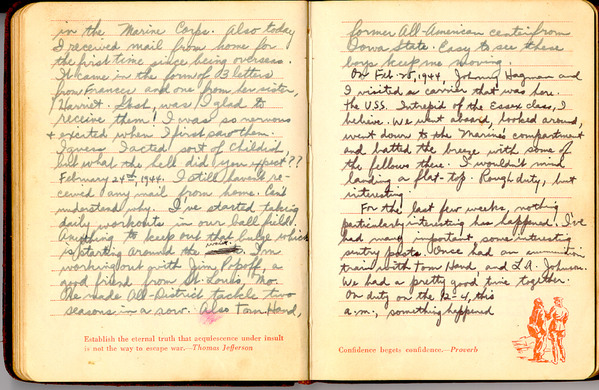 in the Marine Corps. Also today
I received mail from home for
the first time since being overseas.
It came in the form of 13 letters
from Frances and one from her sister,
Harriet. Gosh, was I glad to
receive them! I was so nervous
& excited when I first saw them.
I guess I acted sort of childish,
but what the hell did you expect??
February 24th, 1944. I still haven't re-
ceived any mail from home. Can't
understand why. I've started taking
daily workouts in our ball field.
Anything to keep out that bulge which
is starting around the waist. I'm
working out with Jim Popoff, a
good friend from St. Louis, Mo.
He made All-District tackle two
seasons in a row. Also Tom Hand,
Establish the eternal truth that acquiescence under insult
is not the way to escape war.—Thomas Jefferson
former All-American center from
Iowa State. Easy to see these
boys keep me moving.
On Feb. 25, 1944, Johnny Hagman and
I visited a carrier that was here.
the U.S.S. Intrepid of the Essex class, I
believe. We went aboard, looked around,
went down to the Marine's compartment
and batted the breeze with some of
the fellows there. I wouldn't mind
landing a flat-top. Rough duty, but
interesting.
For the last few weeks nothing
particularly interesting has happened. I've
had many important, some interesting
sentry posts. Once had an ammunition
train with Tom Hand, and L.A. Johnson.
We had a pretty good time together.
On duty on the 12-4, this
a.m., something happened
Confidence begets confidence.—Proverb